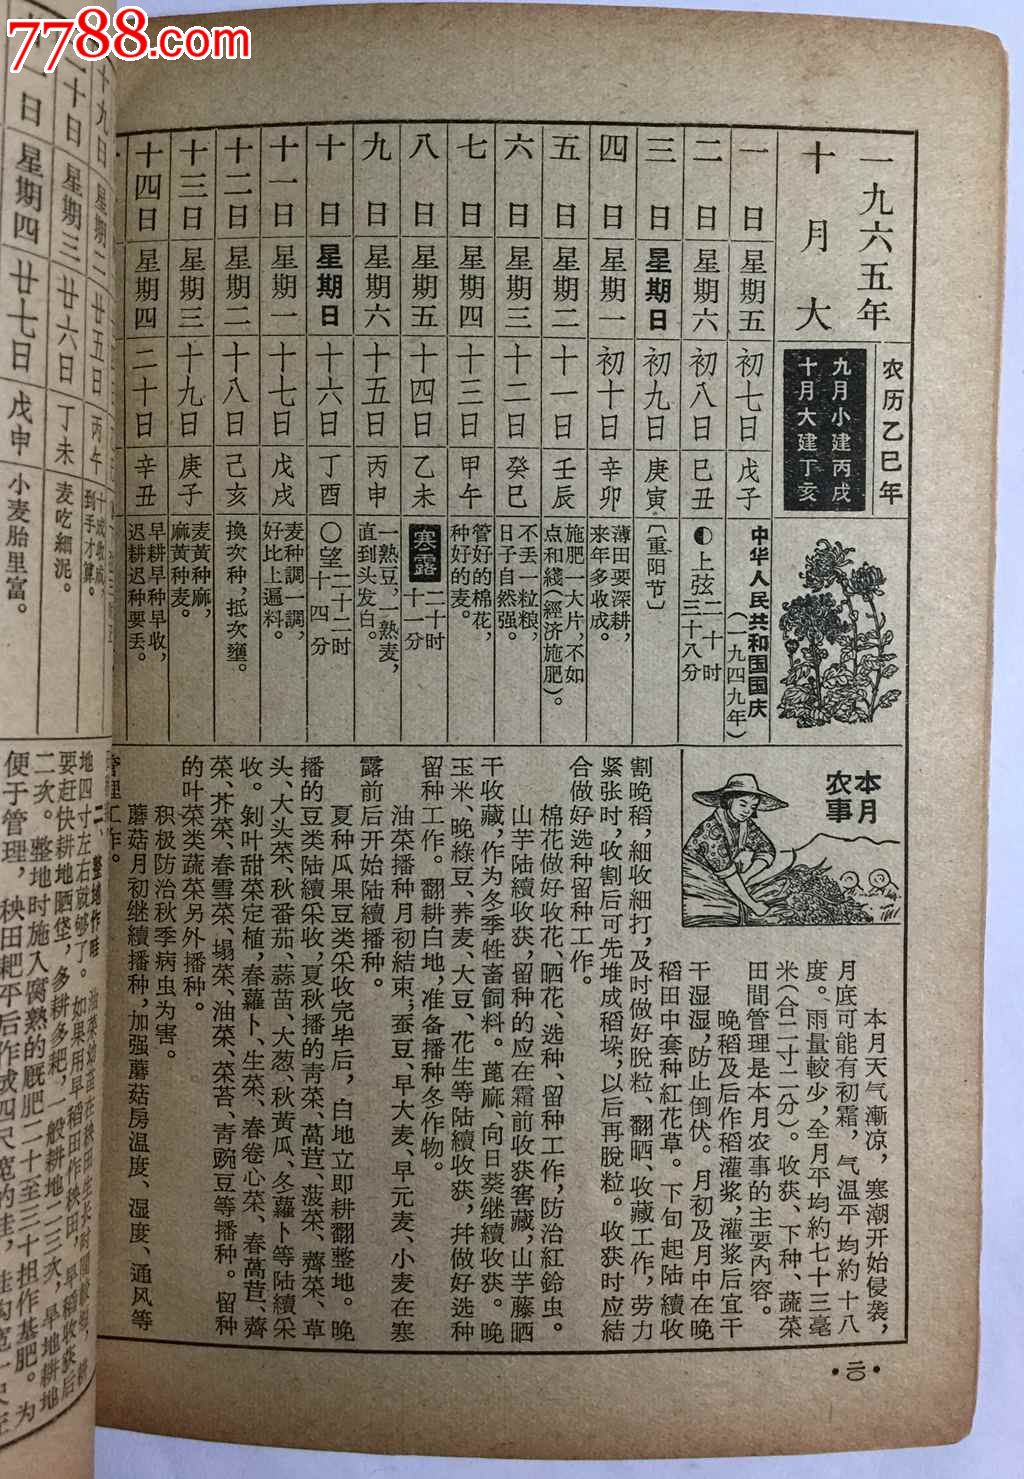 7788.com
一九六五年
十月大
农历乙巳年
九月小建丙戌
十月大建丁亥
一日 星期五 初七日 戊子 中华人民共和国国庆(一九四九年)
二日 星期六 初八日 己丑 ◐上弦二十时三十八分
三日 星期日 初九日 庚寅 〔重阳节〕
四日 星期一 初十日 辛卯 薄田要深耕,来年多收成。
五日 星期二 十一日 壬辰 施肥一大片,不如点和綫(經济施肥)。
六日 星期三 十二日 癸巳 不丢一粒粮,日子自然强。
七日 星期四 十三日 甲午 管好的棉花,种好的麦。
八日 星期五 十四日 乙未 寒露 二十时十一分
九日 星期六 十五日 丙申 一熟豆,一熟麦,直到头发白。
十日 星期日 十六日 丁酉 〇望二十二时十四分
十一日 星期一 十七日 戊戌 麦种調一調,好比上遍料。
十二日 星期二 十八日 己亥 換次种,抵次壅。
十三日 星期三 十九日 庚子 麦黄种麻,麻黄种麦。
十四日 星期四 二十日 辛丑 早耕早种早收,迟耕迟种要丢。
本月农事
本月天气漸凉,寒潮开始侵袭,
月底可能有初霜,气温平均約十八
度。雨量較少,全月平均約七十三毫
米(合二寸二分)。收获、下种、蔬菜
田間管理是本月农事的主要内容。
晚稻及后作稻灌浆,灌浆后宜干
干湿湿,防止倒伏。月初及月中在晚
稻田中套种紅花草。下旬起陆續收
割晚稻,細收細打,及时做好脫粒、翻晒、收藏工作,劳力
紧张时,收割后可先堆成稻垛,以后再脫粒。收获时应結
合做好选种留种工作。
棉花做好收花、晒花、选种、留种工作,防治紅鈴虫。
山芋陆續收获,留种的应在霜前收获窖藏,山芋藤晒
干收藏,作为冬季牲畜飼料。蓖麻、向日葵继續收获。晚
玉米、晚綠豆、荞麦、大豆、花生等陆續收获,幷做好选种
留种工作。翻耕白地,准备播种冬作物。
油菜播种月初結束,蚕豆、早大麦、早元麦、小麦在寒
露前后开始陆續播种。
夏种瓜果豆类采收完毕后,白地立即耕翻整地。晚
播的豆类陆續采收,夏秋播的青菜、萵苣、菠菜、薺菜、草
头、大头菜、秋番茄、蒜苗、大葱、秋黄瓜、冬蘿卜等陆續采
收。剝叶甜菜定植,春蘿卜、生菜、春卷心菜、春萵苣、薺
菜、芥菜、春雪菜、塌菜、油菜、菜苔、青豌豆等播种。留种
的叶菜类蔬菜另外播种。
积极防治秋季病虫为害。
蘑菇月初继續播种,加强蘑菇房温度、湿度、通风等
管理工作。
·二〇·
十九日 星期二 廿五日 丙午
到手才算。
二十日 星期三 廿六日 丁未 麦吃細泥。
一日 星期四 廿七日 戊申 小麦胎里富。
二、整地作畦
地四寸左右就够了。如果用早稻田作秧田,早稻收获后
要赶快耕地晒垡,多耕多耙,一般耕地二三次,旱地耕地
二次。整地时施入腐熟的厩肥二十至三十担作基肥。为
便于管理,秧田耙平后作成四尺宽的畦,